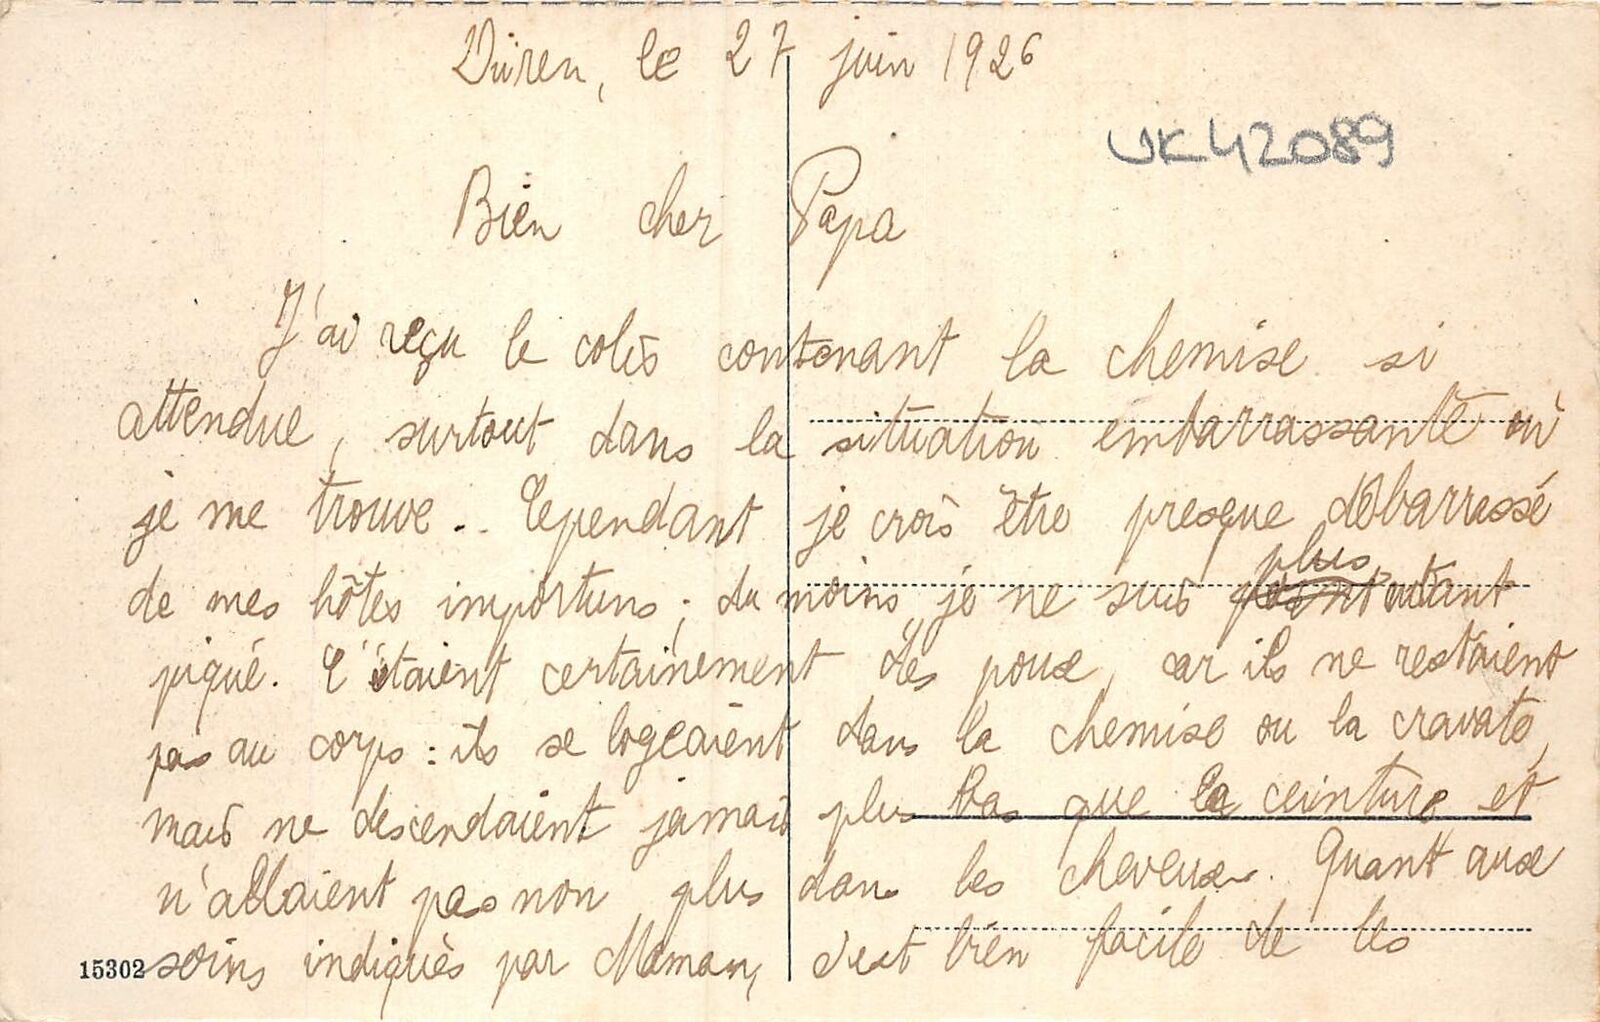 Düren, le 27 juin 1926
UK42089
Bien cher Papa
J'ai reçu le colis contenant la chemise si
attendue, surtout dans la situation embarrassante où
je me trouve.. Cependant je crois être presque débarrassé
plus
de mes hôtes importuns ; du moins, je ne suis point autant
piqué. C'étaient certainement des poux, car ils ne restaient
pas au corps : ils se logeaient dans la chemise ou la cravate,
mais ne descendaient jamais plus bas que la ceinture et
n'allaient pas non plus dans les cheveux. Quant aux
soins indiqués par Maman, c'est bien facile de les
15302